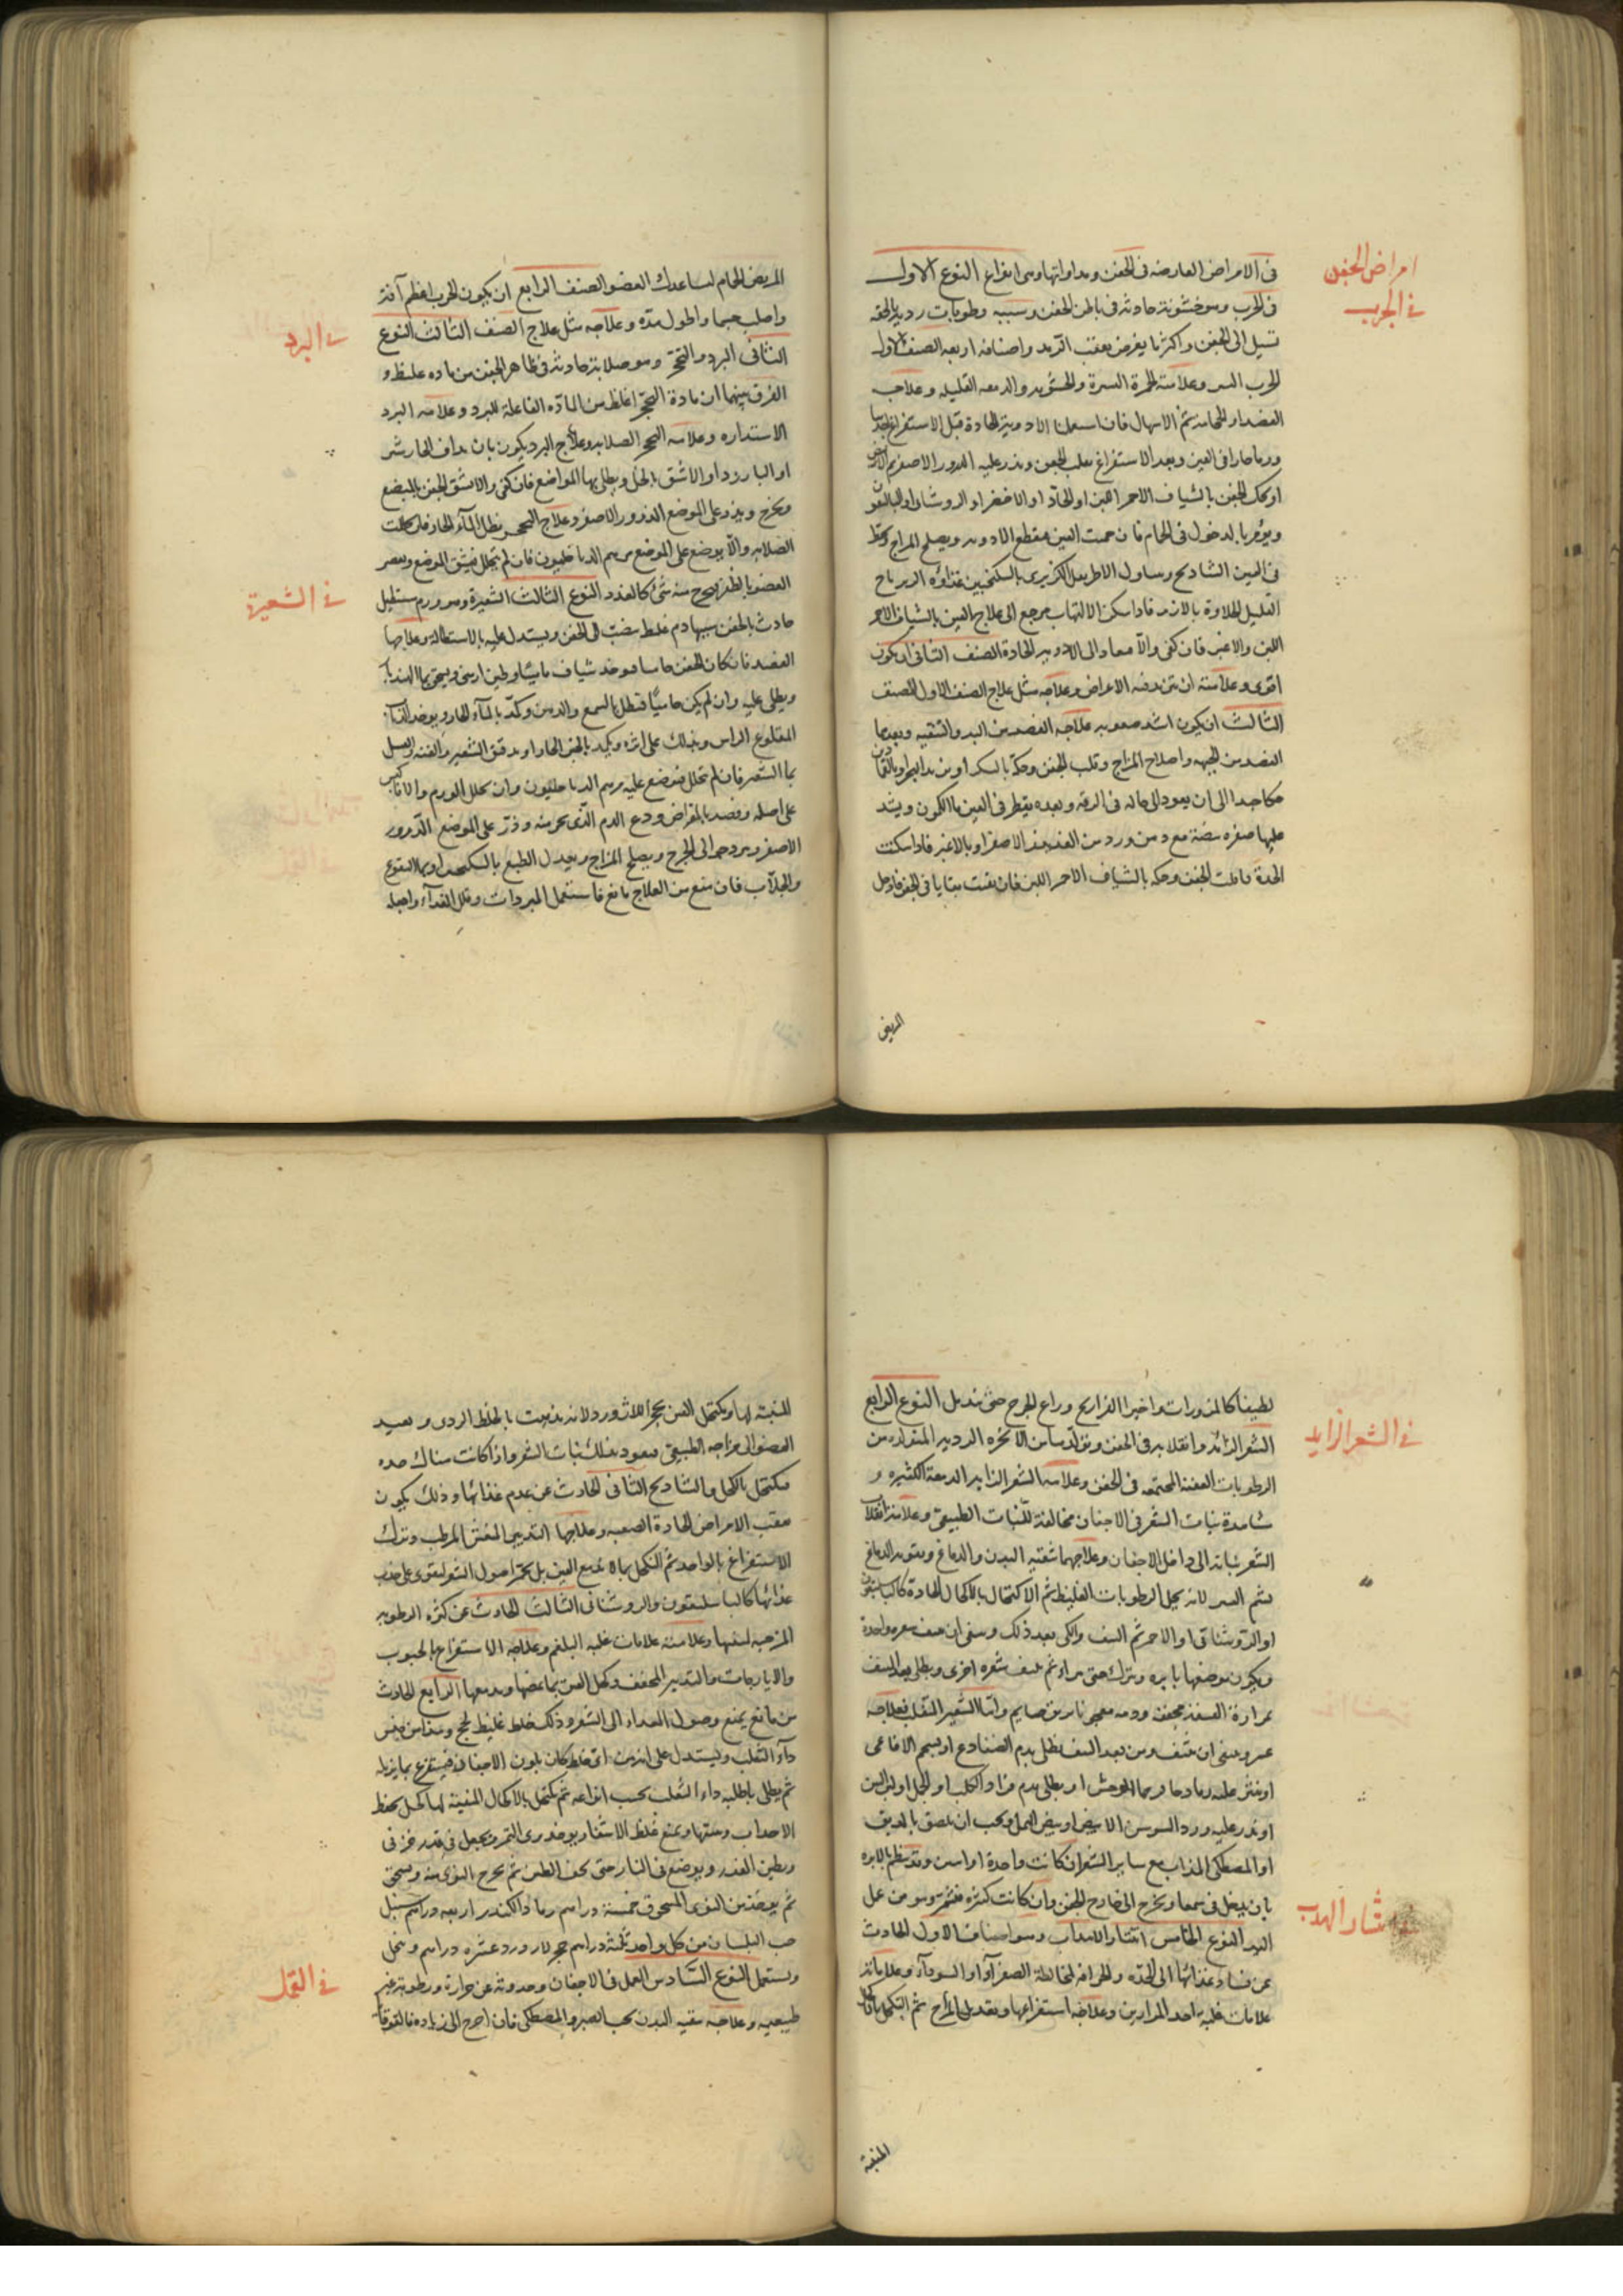 امراض الجفن
في الجرب
في الامراض العارضه في الجفن ومداواتها وهي انواع النوع الاول
في الجرب وهو خشونة حادثة في باطن الجفن وسببه رطوبات ردية مالحة
تسيل الى الجفن واكثر ما يعرض بعقب الرمد واصنافه اربعه الصنف الاول
الجرب وعلامته الحمرة والدمعه القليله وعلاجه
الفصد او الحجامه ثم الاسهال فان استعمال الادوية الحادة قبل الاستفراغ
في العين وبعد الاستفراغ يقلب الجفن ويذر عليه الذرور الاصفر ثم الابيض
او يحك الجفن بالشياف الاحمر اللين او الحاد او الاخضر او الروشنايا
ويؤمر بالدخول في الحمام فان حميت العين فيقطع الادويه ويصلح المزاج
في العين الشادنج ويناول الاطريفل الكزبري بالسكنجبين غذاؤه الزيرباج
القليل الحلاوة فاذا سكن الالتهاب يرجع الى علاج العين بالشياف الاحمر
اللين والاغبر فان كفى والا فعاد الى الادويه الحادة الصنف الثاني ان يكون
اقوى وعلامته ان تزيد فيه الاعراض وعلاجه مثل علاج الصنف الاول الصنف
الثالث ان يكون اشد صعوبه علاجه الفصد من اليد والتنقيه وبعدها
الفصد من الجبهه واصلاح المزاج وقلب الجفن وحكه بالسكر او بزبد البحر
حكا جيدا الى ان يعود الى حاله في الرقه وبعده يقطر في العين ماء الكمون ويشد
عليها صفره بيضة مع دهن ورد من الغد الاصفر او بالاغبر فاذا سكنت
الحدة فاقلب الجفن وحكه بالشياف الاحمر اللين فان بقيت بقايا في الجفن فادخل
المريض
في البرد
في الشعيرة
المريض الحمام ليساعدك العضو الصنف الرابع ان يكون الجرب اعظم آفة
واصلب جسما واطول مدة وعلاجه مثل علاج الصنف الثالث النوع
الثاني البرد والتحجر وهو صلابة حادثة في ظاهر الجفن من ماده غليظه و
الفرق بينهما ان مادة التحجر اغلظ من المادة الفاعلة للبرد وعلامه البرد
الاستداره وعلامه التحجر الصلابه وعلاج البرد يكون بان يداف
او البارزد او الاشق بالخل ويطلى بها المواضع فان كفى والا شق الجفن بالمبضع
ويخرج ويذر على الموضع الذرور الاصفر وعلاج التحجر بنطل الماء الحار فان تحللت
الصلابه والا يوضع على الموضع مرهم الدياخليون فان لم يحلل فيشق الموضع ويعصر
العضو بالظفر ليخرج منه شئ كالغدد النوع الثالث الشعيرة وهو ورم مستطيل
حادث بالجفن سببها دم غليظ ينصب الى الجفن ويستدل عليه بالاستطالة وعلاجها
الفصد فان كان الجفن حاميا فيوخذ شياف ماميثا وطين ارمني ويعجن بماء الهندبا
ويطلى عليه وان لم يكن حاميا فيطلى بالشمع والدهن وكمد بالماء الحار ويوخذ الذباب
المقلوع الراس ويدلك على اثره ويكمد بالخبز الحار او بدقيق الشعير والقنه والعسل
بماء الشعير فان لم تحلل فيوضع عليه مرهم الدياخليون وان تحلل الورم والا فاكبس
على اصله وقصه بالمقراض ودع الدم الذي يخرج منه وذر على الموضع الذرور
الاصفر ويصلح المزاج ويعدل الطبع بالسكنجبين او بماء النقوع
والجلاب فان منع من العلاج مانع فاستعمل المبردات وقلل الغذاء واجعله
في الشعر الزايد
انتثار الهدب
لطيفا كالمزورات واخيرا الفراريج وراع الجرح حتى يندمل النوع الرابع
الشعر الزائد وانقلابه في الجفن وتولدهما من الابخره الرديه المتولده من
الرطوبات العفنه المجتمعه في الجفن وعلامه الشعر الزايد الدمعة الكثيره و
مشاهدة نبات الشعر في الاجفان مخالفة للنبات الطبيعي وعلامة انقلاب
الشعر نباته الى داخل الاجفان وعلاجهما تنقيه البدن والدماغ وتقويه الدماغ
بشم العنبر لانه يحل الرطوبات الغليظه ثم الاكتحال بالاكحال الحادة كالباسليقون
او الروشنائي او الاحمر ثم النتف والكي بعد ذلك وينبغي ان ينتف شعره واحدة
ويكوى موضعها بابره ويترك حتى يبرأ ثم ينتف شعره اخرى ويطلى بعد النتف
بمرارة القنفذ مجفف ودمه معجونا بريق صايم واما الشعر المنقلب فعلاجه
عسر وينبغي ان ينتف ومن بعد النتف يطلى بدم الضفادع او بشحم الافاعي
او يطلى بدم قراد الكلب او الجمل او لبن التين
او يذر عليه ورد السوسن الابيض او بيض النمل ويجب ان يلصق بالدبق
او المصطكى المذاب مع ساير الشعر ان كانت واحدة او اثنتين وقد ينظم بالابره
بان يدخل في سمها ويخرج الى خارج الجفن وان كانت كثيره فتشمر وهو من عمل
اليد النوع الخامس انتثار الاهداب وهو اصناف الاول الحادث
عن فساد غذائها الى الحدة والحرافه لمخالطة الصفرآء او السودآء وعلاماته
علامات غلبه احد المرارين وعلاجه استفراغها وتعديل المزاج ثم التكحل بالاكحال
المنبتة
في القمل
المنبتة لها ويكتحل العين بحجر اللازورد لانه يذهب بالخلط الردي ويعيد
العضو الى مزاجه الطبيعي فيعود بذلك نبات الشعر واذا كانت هناك حده
فيكتحل بالكحل والشادنج الثاني الحادث عن عدم غذائها وذلك يكون
بعقب الامراض الحادة الصعبه وعلاجها التدبير المنعش المرطب وترك
الاستفراغ بالواحدة ثم التكحل بما لا يدمع العين بل يحمر اصول الشعر ليقوى على جذب
غذائها كالباسليقون والروشنائي الثالث الحادث عن كثره الرطوبه
المزجيه لنبتها وعلامته علامات غلبه البلغم وعلاجه الاستفراغ بالحبوب
والايارجات والتدبير المجفف وكحل العين بما يقبضها ويدمعها الرابع الحادث
من مانع يمنع وصول الغداء الى الشعر وذلك خلط غليظ لحج وهذا من جنس
دآء الثعلب ويستدل على انه من اي خلط كان بلون الاجفان فيستفرغ بما يزيله
ثم يطلى باطليه داء الثعلب بحسب انواعه ثم يكتحل بالاكحال المنبتة لها كحل يحفظ
الاهداب وينبتها ويمنع غلظ الاشفار يوخذ نوى التمر ويجعل في قدر خزفي
ويطين القدر ويوضع في النار حتى يجف الطين ثم يخرج النوى منه ويسحق
ثم يوخذ من النوى المسحوق خمسة دراهم رماد الكندر اربعه دراهم سنبل
حب البلسان من كل واحد ثلثة دراهم حجر لازورد عشره دراهم وينخل
ويستعمل النوع السادس القمل في الاجفان وحدوثه عن حرارة ورطوبة غير
طبيعيه وعلاجه تنقيه البدن بحب الصبر والمصطكى فان احوج الى زياده فبالقوقايا